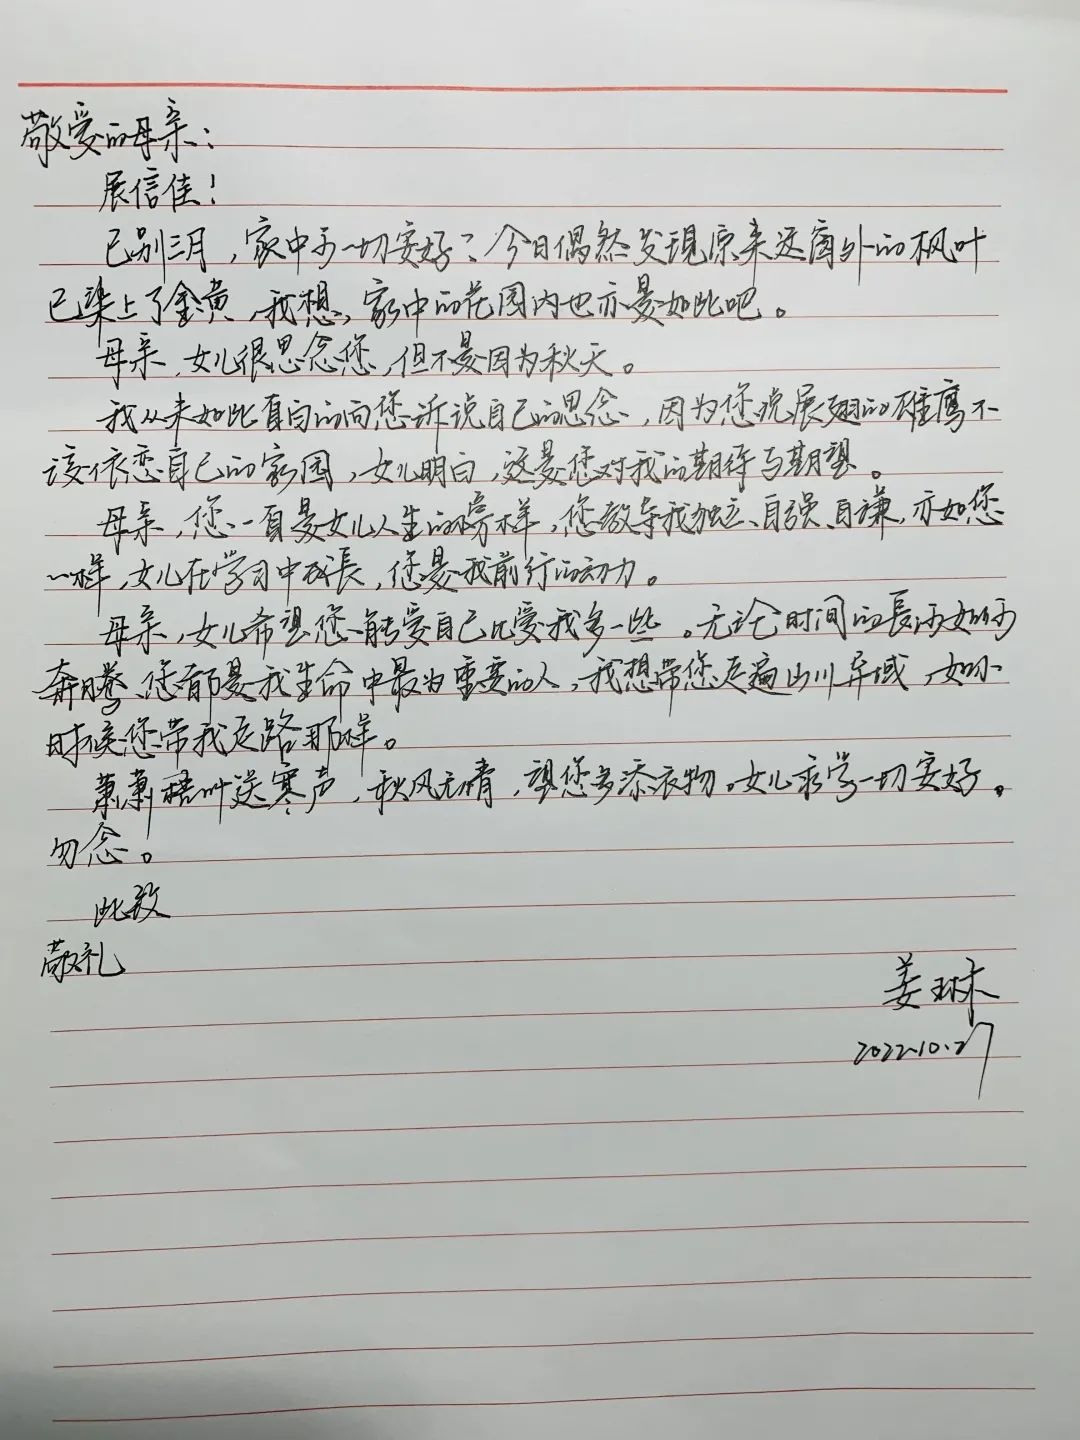 敬爱的母亲：
展信佳！
已别三月，家中可一切安好？今日偶然发现原来这窗外的枫叶
已染上了金黄，我想，家中的花园内也亦是如此吧。
母亲，女儿很思念您，但不是因为秋天。
我从未如此直白的向您诉说自己的思念，因为您说展翅的雄鹰不
该依恋自己的家园，女儿明白，这是您对我的期待与期望。
母亲，您一直是女儿人生的榜样，您教导我独立、自强、自谦，亦如您
一样，女儿在学习中成長，您是我前行的动力。
母亲，女儿希望您能爱自己比爱我多一些。无论时间的長河如何
奔腾，您都是我生命中最为重要的人，我想带您走遍山川异域，如小
时候您带我走路那样。
萧萧梧叶送寒声，秋风无情，望您多添衣物。女儿求学一切安好。
勿念。
此致
敬礼
姜琳
2022.10.27